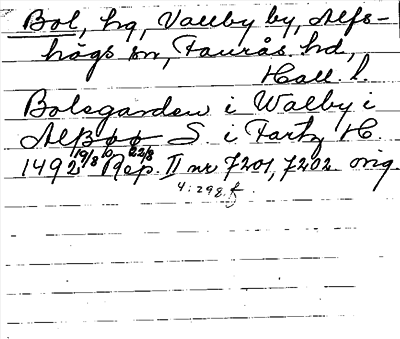 Bol, hg, Vallby by, Alfs-
högs sn, Faurås hd,
Hall. l.
Bolsgarden i Walby i
Alßøø S. i Fartz H.
1492 19/8 o. 22/8 Rep. II nr 7201, 7202 orig.
4:298 f.